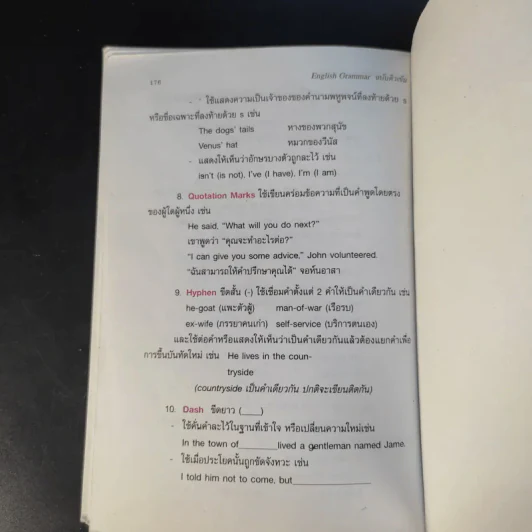 178 English Grammar ฉบับตัวเข้ม
- ใช้แสดงความเป็นเจ้าของของคำนามพหูพจน์ที่ลงท้ายด้วย s
หรือชื่อเฉพาะที่ลงท้ายด้วย s เช่น
The dogs' tails หางของพวกสุนัข
Venus' hat หมวกของวีนัส
- แสดงให้เห็นว่าอักษรบางตัวถูกละไว้ เช่น
isn't (is not), I've (I have), I'm (I am)
8. Quotation Marks ใช้เขียนคร่อมข้อความที่เป็นคำพูดโดยตรง
ของผู้ใดผู้หนึ่ง เช่น
He said, "What will you do next?"
เขาพูดว่า "คุณจะทำอะไรต่อ?"
"I can give you some advice," John volunteered.
"ฉันสามารถให้คำปรึกษาคุณได้" จอห์นอาสา
9. Hyphen ขีดสั้น (-) ใช้เชื่อมคำตั้งแต่ 2 คำให้เป็นคำเดียวกัน เช่น
he-goat (แพะตัวผู้) man-of-war (เรือรบ)
ex-wife (ภรรยาคนเก่า) self-service (บริการตนเอง)
และใช้ต่อคำหรือแสดงให้เห็นว่าเป็นคำเดียวกันแล้วต้องแยกคำเพื่อ
การขึ้นบันทัดใหม่ เช่น He lives in the coun-
tryside
(countryside เป็นคำเดียวกัน ปกติจะเขียนติดกัน)
10. Dash ขีดยาว (___)
- ใช้คั่นคำละไว้ในฐานที่เข้าใจ หรือเปลี่ยนความใหม่เช่น
In the town of________lived a gentleman named Jame.
- ใช้เมื่อประโยคนั้นถูกขัดจังหวะ เช่น
I told him not to come, but________________